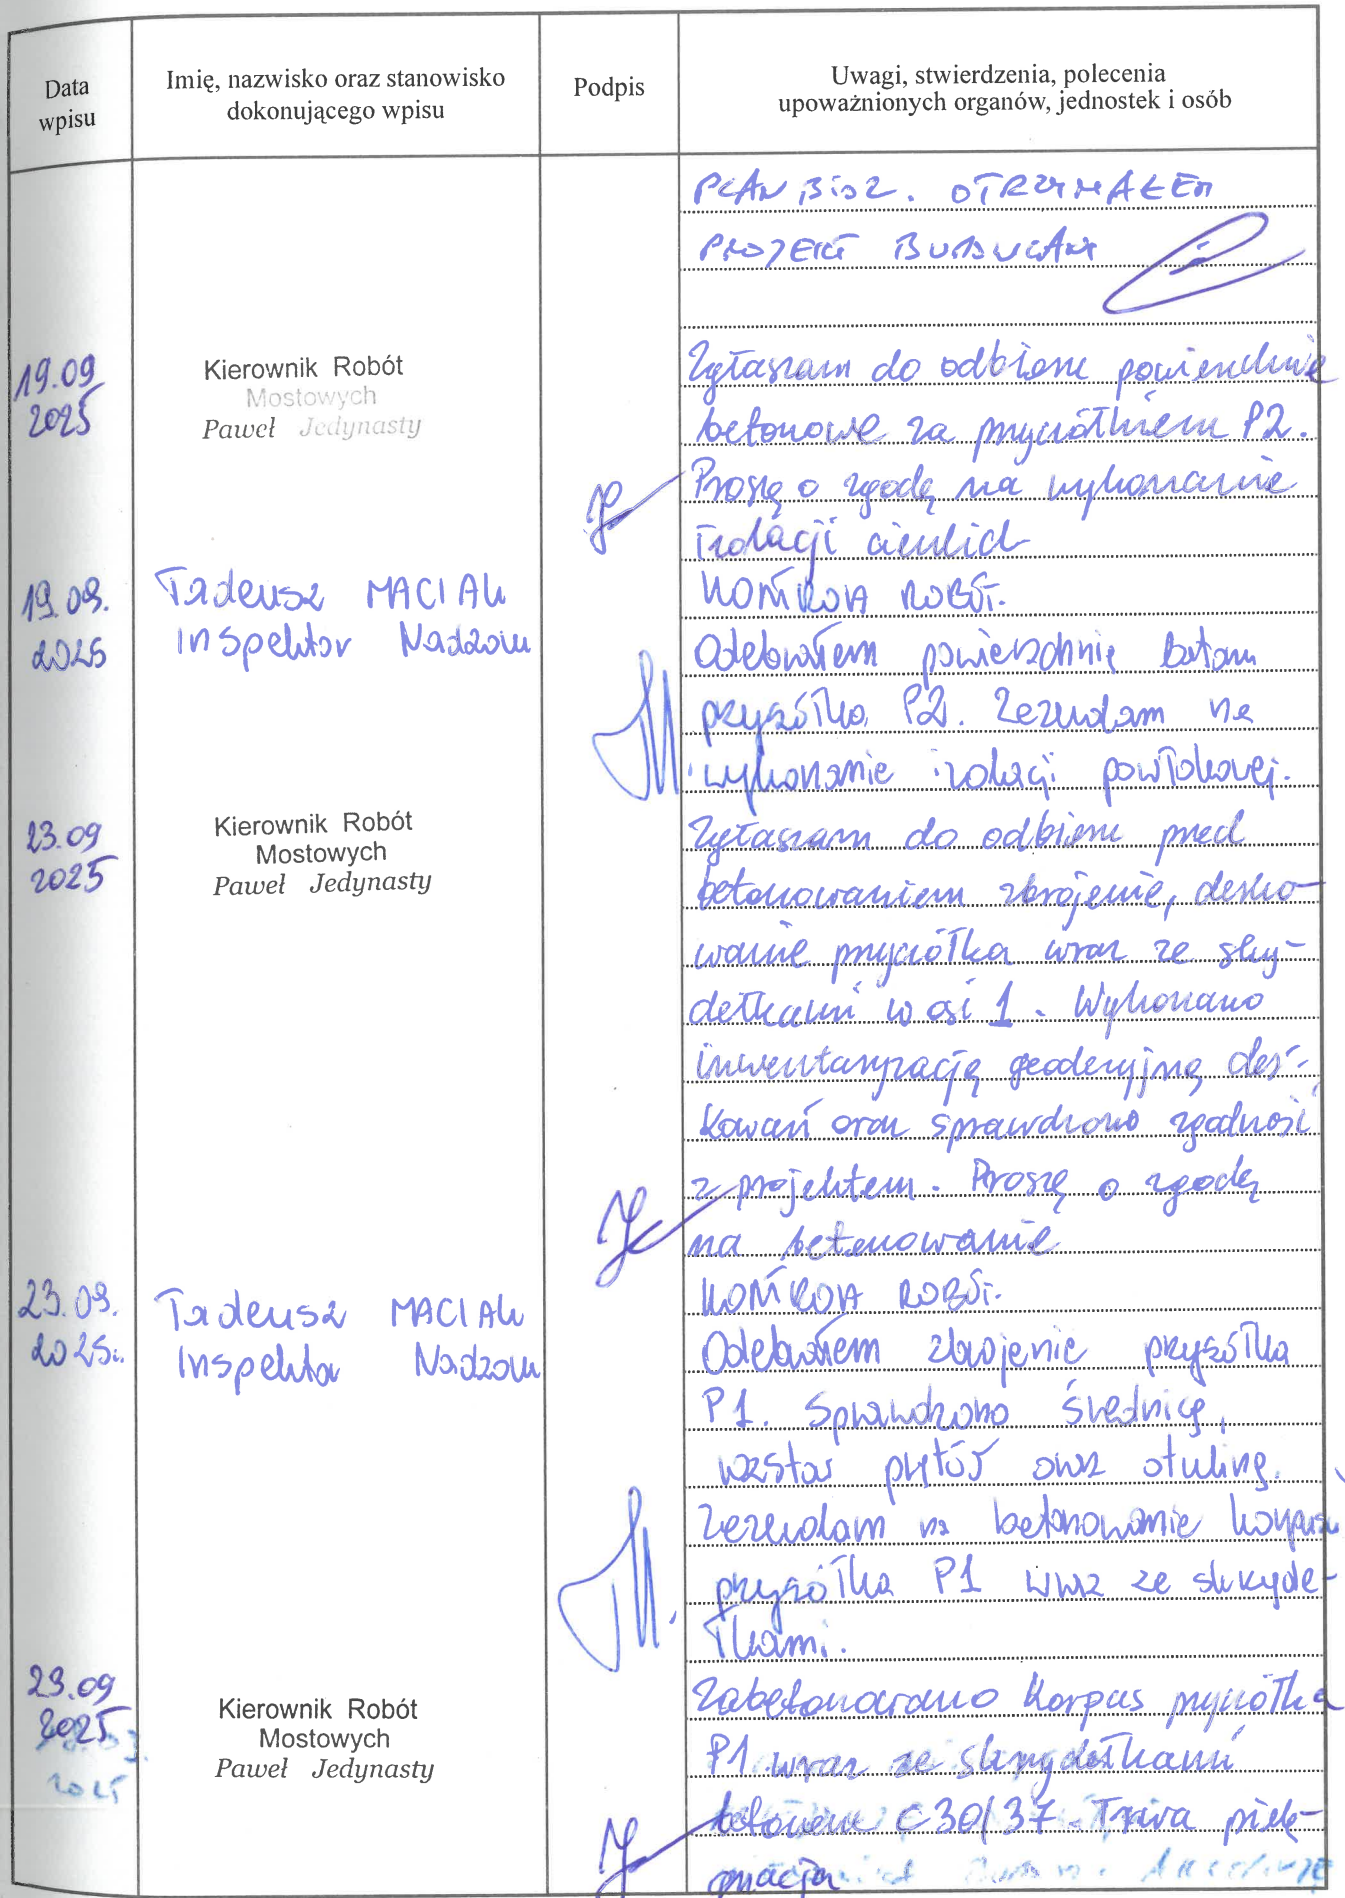 Data
wpisu
Imię, nazwisko oraz stanowisko
dokonującego wpisu
Podpis
Uwagi, stwierdzenia, polecenia
upoważnionych organów, jednostek i osób
PLAN BIOZ. OTRZYMAŁEM
PROJEKT BUDOWLANY
19.09
2025
Kierownik Robót
Mostowych
Paweł Jedynasty
Zgłaszam do odbioru powierzchnie
betonowe za przyczółkiem P2.
Proszę o zgodę na wykonanie
izolacji cienkich
19.09.
2025
Tadeusz MACIAK
Inspektor Nadzoru
KONTROLA ROBÓT.
Odebrałem powierzchnię betonu
przyczółka P2. Zezwalam na
wykonanie izolacji powłokowej.
23.09
2025
Kierownik Robót
Mostowych
Paweł Jedynasty
Zgłaszam do odbioru przed
betonowaniem zbrojenie, desko-
wanie przyczółka wraz ze skrzy-
dełkami w osi 1. Wykonano
inwentaryzację geodezyjną des-
kowań oraz sprawdzono zgodność
z projektem. Proszę o zgodę
na betonowanie
23.09.
2025r.
Tadeusz MACIAK
Inspektor Nadzoru
KONTROLA ROBÓT.
Odebrałem zbrojenie przyczółka
P1. Sprawdzono średnicę,
rozstaw prętów oraz otulinę.
Zezwalam na betonowanie korpusu
przyczółka P1 wraz ze skrzyde-
łkami.
23.09
2025
Kierownik Robót
Mostowych
Paweł Jedynasty
Zabetonowano korpus przyczółka
P1 wraz ze skrzydełkami
betonem C30/37. Trwa pielę-
gnacja